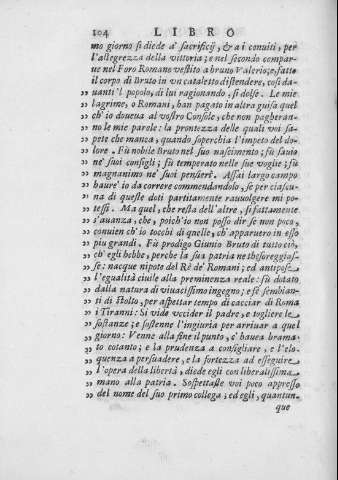 104 LIBRO
mo giorno si diede a' sacrificij, & a i conuiti, per
l'allegrezza della vittoria; e nel secondo compar-
ue nel Foro Romano vestito a bruno Valerio; e fatto
il corpo di Bruto in vn cataletto distendere, così da-
„ uanti 'l popolo, di lui ragionando, si dolse. Le mie
„ lagrime, o Romani, han pagato in altra guisa quel
„ ch'io doueua al vostro Console, che non pagheran-
„ no le mie parole: la prontezza delle quali voi sa-
„ pete che manca, quando soperchia l'impeto del do-
„ lore. Fù nobile Bruto nel suo nascimento; fù sauio
„ ne' suoi consigli; fù temperato nelle sue voglie; fù
„ magnanimo ne' suoi pensieri. Assai largo campo
„ haure' io da correre commendandolo, se per ciascu-
„ na di queste doti partitamente rauuolgere mi po-
„ tessi. Ma quel, che resta dell'altre, sì fattamente
„ s'auanza, che, poich'io non posso dir se non poco,
„ conuien ch'io tocchi di quelle, ch'apparuero in esso
„ piu grandi. Fù prodigo Giunio Bruto di tutto ciò,
„ ch'egli hebbe, perche la sua patria ne thesoreggias-
„ se: nacque nipote del Rè de' Romani; ed antipose
„ l'egualità ciuile alla preminenza reale: fù dotato
„ dalla natura di viuacissimo ingegno; e fè sembian-
„ ti di stolto, per aspettar tempo di cacciar di Roma
„ i Tiranni: Si vide vccider il padre, e togliere le
„ sostanze; e sostenne l'ingiuria per arriuar a quel
„ giorno: Venne alla fine il punto, c'haueua brama-
„ to cotanto; e la prudenza a consigliare, e l'elo-
„ quenza a persuadere, e la fortezza ad esseguire
„ l'opera della libertà, diede egli con liberalissima
„ mano alla patria. Sospettaste voi poco appresso
„ del nome del suo primo collega; ed egli, quantun-
que